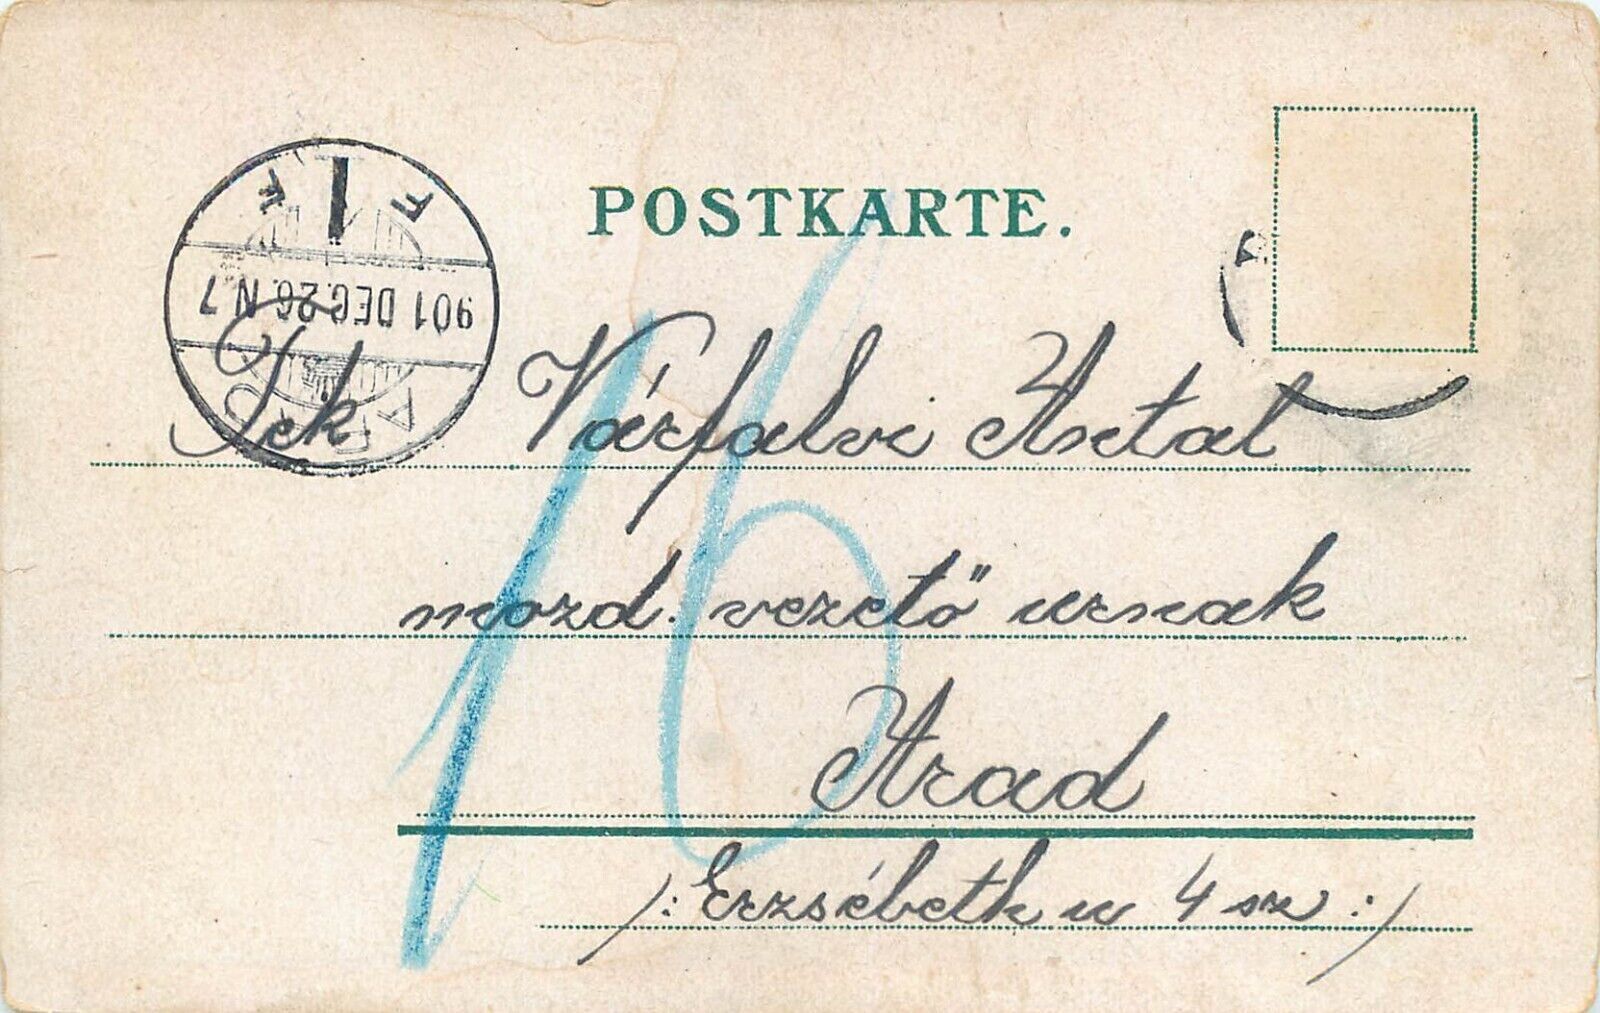 POSTKARTE.
901 DEC. 26. N 7
Tek Várfalvi Antal
mozd. vezető urnak
Arad
/: Erzsébetk u 4 sz :/
16